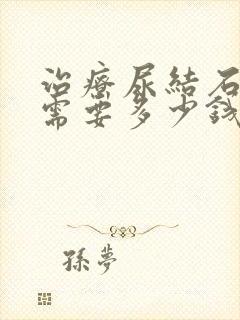 治療尿結石
需要多少錢
孫夢